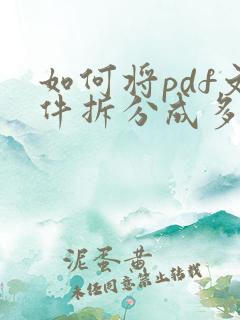 如何将pdf文
件拆分成多
泥蛋黄
未经同意禁止转载